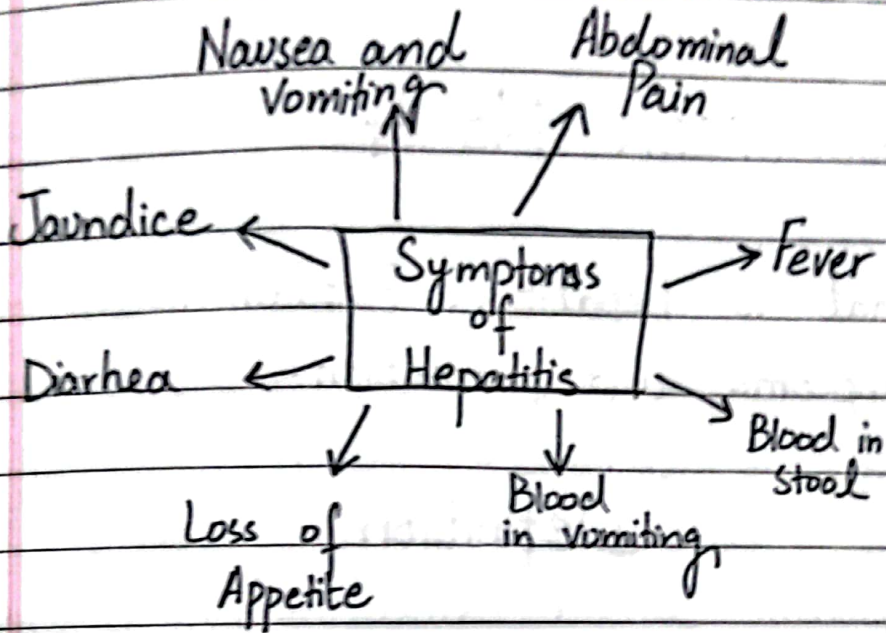 Nausea and
Vomiting
Abdominal
Pain
Jaundice
Symptoms
of
Hepatitis
Fever
Diarhea
Blood in
stool
Loss of
Appetite
Blood
in vomiting